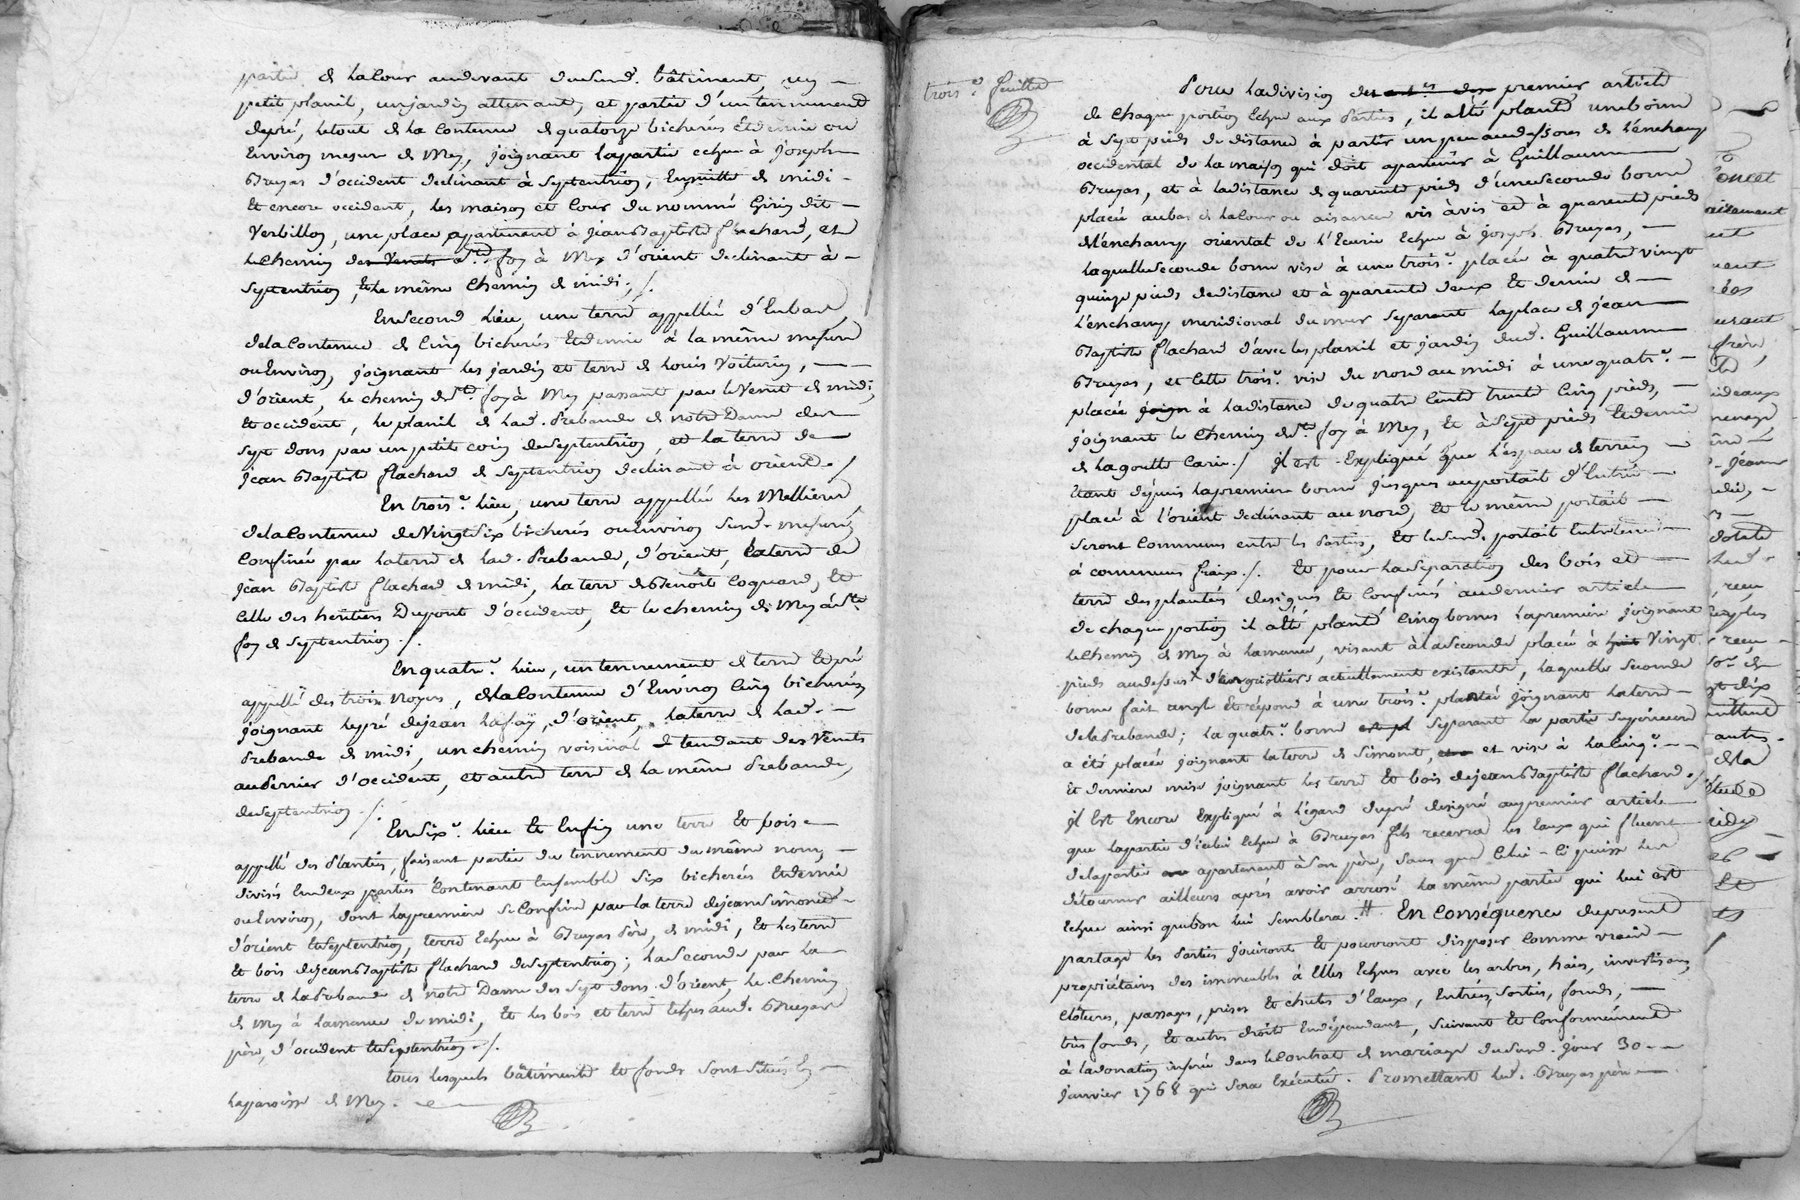 partie de la cour audevant dudusd. bâtiment, un
petit planil, un jardin attenant, et partie d'un tennement
depré, letout de la contenue de quatorze bicherées et demie ou
Environ mesure de Mey, joignant lapartie echue à joseph
Bruyas d'occident declinant à septentrion, Ensuitte de midi
Et encore occident, les maison et cour du nommé Girin dit
Verbillon, une place appartenant à jean Baptiste flachard, et
le chemin des Venets à Ste. foy à Mey d'orient declinant à
septentrion, Et le même chemin de midi ./.
En second lieu, une terre appellée d'Enbas,
delacontenue de cinq bicherées Etdemie à la même mesure
ouEnviron, joignant les jardin et terre de louis Voiturin,
d'orient, le chemin de Ste. foy à Mey passant par le Venet de midi,
Et occident, le planil de lad. Prebande de notre Dame des
sept dons par un petit coin de septentrion, et la terre de
jean Baptiste flachard de septentrion declinant à orient ./
En trois.e lieu, une terre appellée les Mellieres
delacontenue deVingtsix bicherées ouEnviron susd. mesure,
Confinée par laterre de lad. Prebande, d'orient, laterre de
jean Baptiste flachard de midi, la terre deBenoît Coquard, Et
celle des héritiers Dupont d'occident, Et le chemin de Mey à Ste.
foy de septentrion ./
En quatr.e lieu, un tennement de terre Et pré
appellé des trois noyers, delacontenue d'Environ cinq bicherées
joignant lepré dejean lafay, d'orient, laterre de lad.
Prebande de midi, un chemin voisinal tendant des Venets
auPernier d'occident, et autre terre de la même Prebande,
deseptentrion ./.
En six.e lieu Et Enfin une terre Et bois
appellé des Plantées, faisant partie du tennement du même nom,
divisés Endeux parties Contenant Ensemble six bicherées Etdemie
ouEnviron, dont lapremiere se Confine par la terre dejean Simond
d'orient Etseptentrion, terre Echue à Bruyas Père, de midi, Et les terre
Et bois dejean Baptiste flachard deseptentrion; laseconde par la
terre de laPrebande de notre Dame des sept dons d'orient, le chemin
de Mey à lamanne de midi, Et les bois et terre Echus aud. Bruyas
père, d'occident Etseptentrion ./.
tous lesquels bâtiments Et fonds sont situés En
laparoisse de Mey.
trois.e feuille
Pour ladivision des premier article
de chaque portion Echue aux Parties, il a été planté une borne
à sept pieds de distance à partir un peu audessous de l'enchamp
occidental de la maison qui doit apartenir à Guillaume
Bruyas, et à ladistance de quarente pieds d'uneseconde borne
placée aubas de lacour ou aisances vis à vis et à quarente pieds
del'enchamp oriental de l'Ecurie Echue à joseph Bruyas,
laquelleseconde borne vise à une trois.e placée à quatre vingt
quinze pieds dedistance et à quarente deux Et demie de
l'enchamp meridional du mur separant laplace de jean
Baptiste flachard d'avec les planil et jardin dud. Guillaume
Bruyas, et cette trois.e vise du nord au midi à une quatr.e
placée joign à ladistance de quatre cents trente cinq pieds,
joignant le chemin de Ste. foy à Mey, Et à sept pieds Etdemi
de lagoutte Carin ./ il est Expliqué que l'espace de terrein
Etant depuis lapremiere borne jusques auportail d'Entrée
placé à l'orient declinant au nord, Et le même portail
seront communs entre les Parties, Et ledusd. portail Entretenu
à communs fraix ./. Et pour laseparation des bois et
terre desplantées designés Et confinés audernier article
de chaque portion il a été planté cinq bornes lapremiere joignant
lechemin de Mey à lamanne, visant à laseconde placée à huit Vingt
pieds audessus d'un griottiers actuellement existante, laquelle seconde
borne fait angle Etrépond à une trois.e plantée joignant laterre
delaPrebande; la quatr.e borne separant la partie supérieure
a été placée joignant laterre de Simont, et vise à lacinq.e
Et derniere mise joignant les terre Et bois dejean Baptiste flachard ./
il Est Encore Expliqué à l'égard dupré designé aupremier article
que lapartie d'icelui Echue à Bruyas fils recevra les Eaux qui fluent
delapartie apartenant à Son père, sans que Celui-ci puisse les
détourner ailleurs après avoir arrosé la même partie qui lui est
Echue ainsi quebon lui semblera. En conséquence dupresent
partage les Parties jouiront Et pourront disposer comme vrais
propriétaires des immeubles à Elles Echus avec les arbres, haies, investisons,
clôtures, passages, prises Et chutes d'Eaux, Entrées, sorties, fonds,
très fonds, Et autres droits Endépendant, suivant Et conformément
à ladonation insérée dans leContrat de mariage dudusd. jour 30
janvier 1768 qui sera Exécutée. Promettant led. Bruyas père